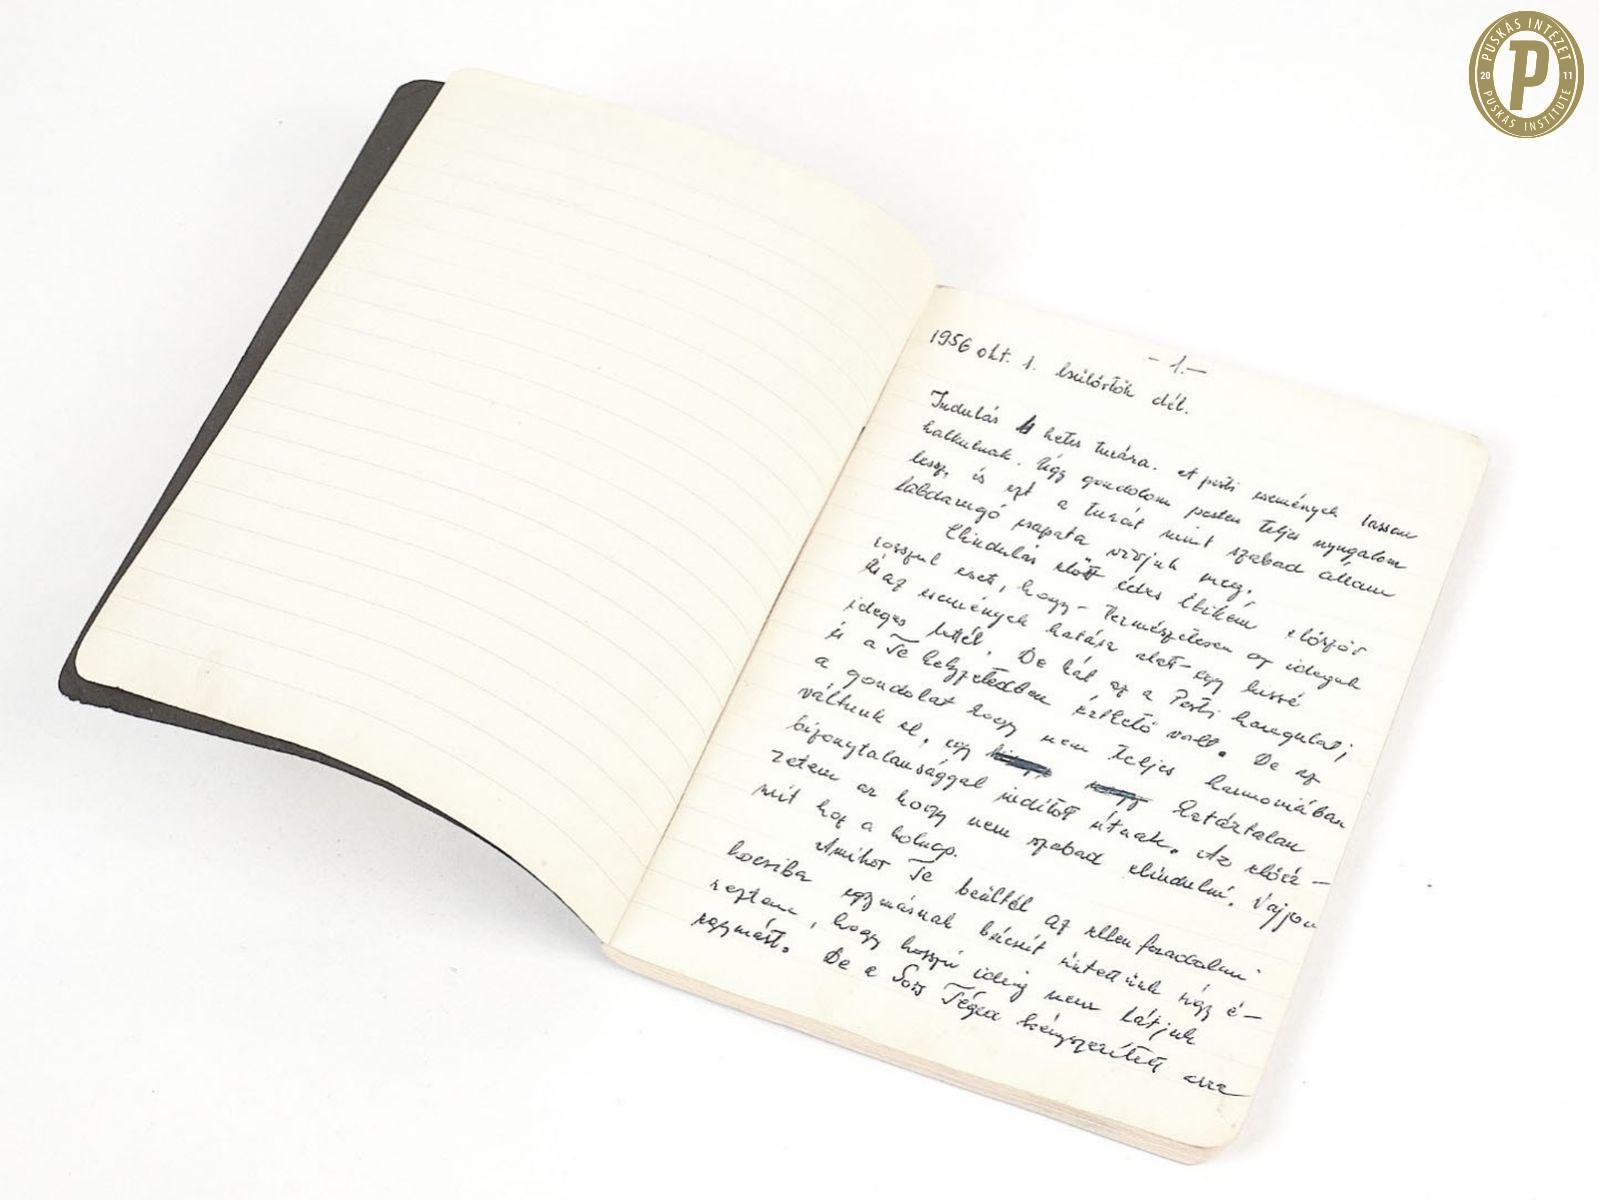 PUSKÁS INTÉZET
20 11
P
PUSKÁS INSTITUTE
- 1. -
1956 okt. 1. csütörtök dél.
Indulás 4 hetes turára. A pesti események lassan
halkulnak. Úgy gondolom pesten teljes nyugalom
lessz, és ezt a turát mint szabad állam
labdarugó csapata vivjuk meg.
Elindulás előtt édes Ibikém először
rosszul eset, hogy - természetesen az idegek
és az események hatása alat - egy kissé
ideges lettél. De hát ez a Pesti hangulat;
és a Te helyzetedben érthető volt. De ez
a gondolat hogy nem teljes harmoniában
váltunk el, egy határtalan
bizonytalansággal inditott útnak. Az előér-
zetem az hogy nem szabad elindulni. Vajjon
mit hoz a holnap.
Amikor Te beültél az ellen foradalmi
kocsiba egymásnak búcsút intettünk úgy é-
reztem, hogy hosszú ideig nem látjuk
egymást. De a Sors Téged kényszeritett arra